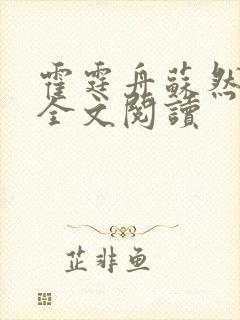 霍霆舟蘇然
全文閱讀
芷非鱼